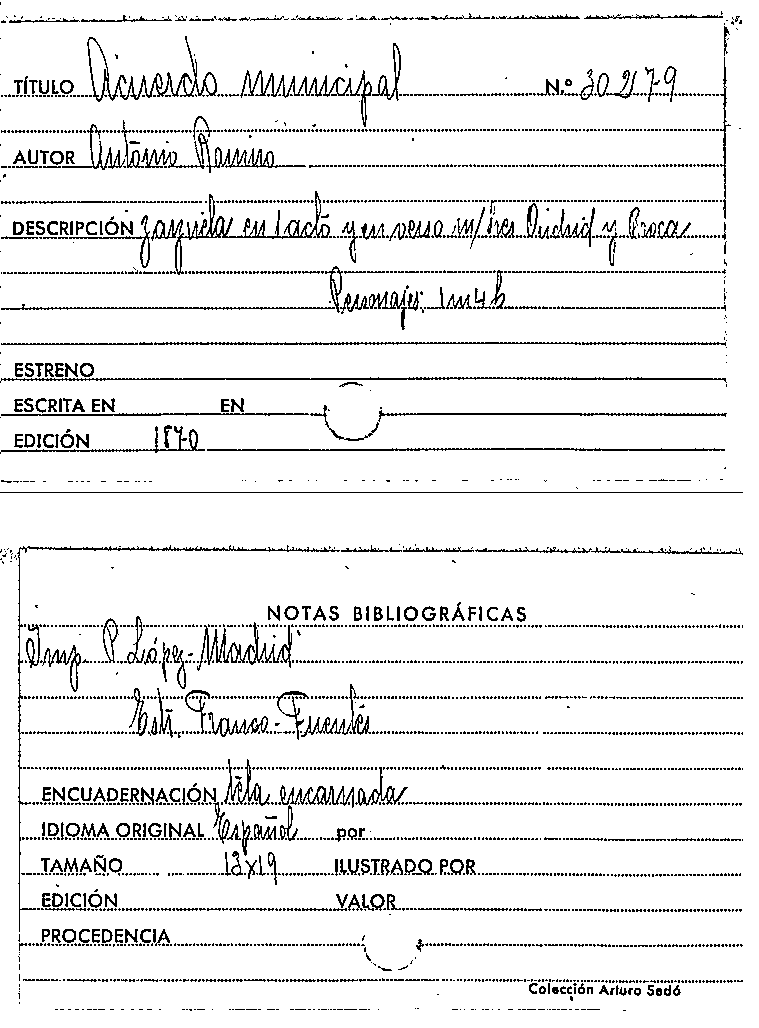 TÍTULO Acuerdo municipal N.º 30217-9
AUTOR Antonio Ramiro
DESCRIPCIÓN zarzuela en 1 acto y en verso m/ y Broca
Personajes: 1m 4h
ESTRENO
ESCRITA EN EN
EDICIÓN 1870
NOTAS BIBLIOGRÁFICAS
Imp. P. López-Madrid
Estr. Franco-Fuentes
ENCUADERNACIÓN tela encarnada
IDIOMA ORIGINAL Español por
TAMAÑO 13x19 ILUSTRADO POR
EDICIÓN VALOR
PROCEDENCIA
Colección Arturo Sedó